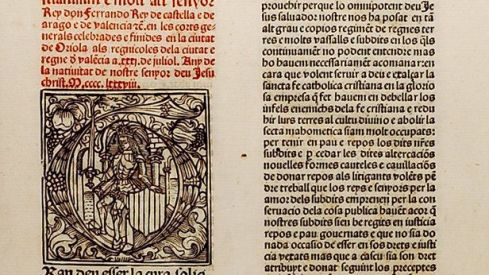 molt alt senyor
Rey don Ferrando Rey de castella e de
arago e de valencia ꝛc̄. en les corts generals
celebrades e finides en la ciutat de
Oriola als regnicoles dela ciutat e
regne d̄ valẽcia a.xxxj. de juliol. Any de
la natiuitat de nostre senyor deu Jesu
christ. M.cccc.lxxxviij.
Ran deu esser la cura solici
prouehir perque lo omnipotent deu Je
sus saluador nostre nos ha posat en tã
alt grau e copios regimẽt de regnes ter
res e molts vassalls e subdits en los q̃ls
continuamẽt no podent entendre mas
ho hauem necessariamẽt acomanar: en
cara que volent seruir a deu e exalçar la
sancta fe catholica cristiana en la glorio
sa empresa q̃ fet hauem en debellar los in
fels enemichs dela fe cristiana e redu
hir lurs terres al cultu diuino e abolir la
secta mahometica siam molt occupats:
per tenir en pau e repos los dits nr̃es
subdits e p̱ cedar les dites altercaciõs
nouelles formes cauteles e cauillaciõs
de donar repos als litigants volẽts pẽ
dre treball que los reys e senyors per la
amor dels subdits emprenen per la con
seruacio dela cosa publica hauẽt acor q̃
nostres subdits sien de regits en iusticia
repos e pau gouernats e que no sia do
nada occasio de esser en sos drets e iusti
cia vexats mas que a cascu sia son dret
atribuyt e donat obseruants los precepts